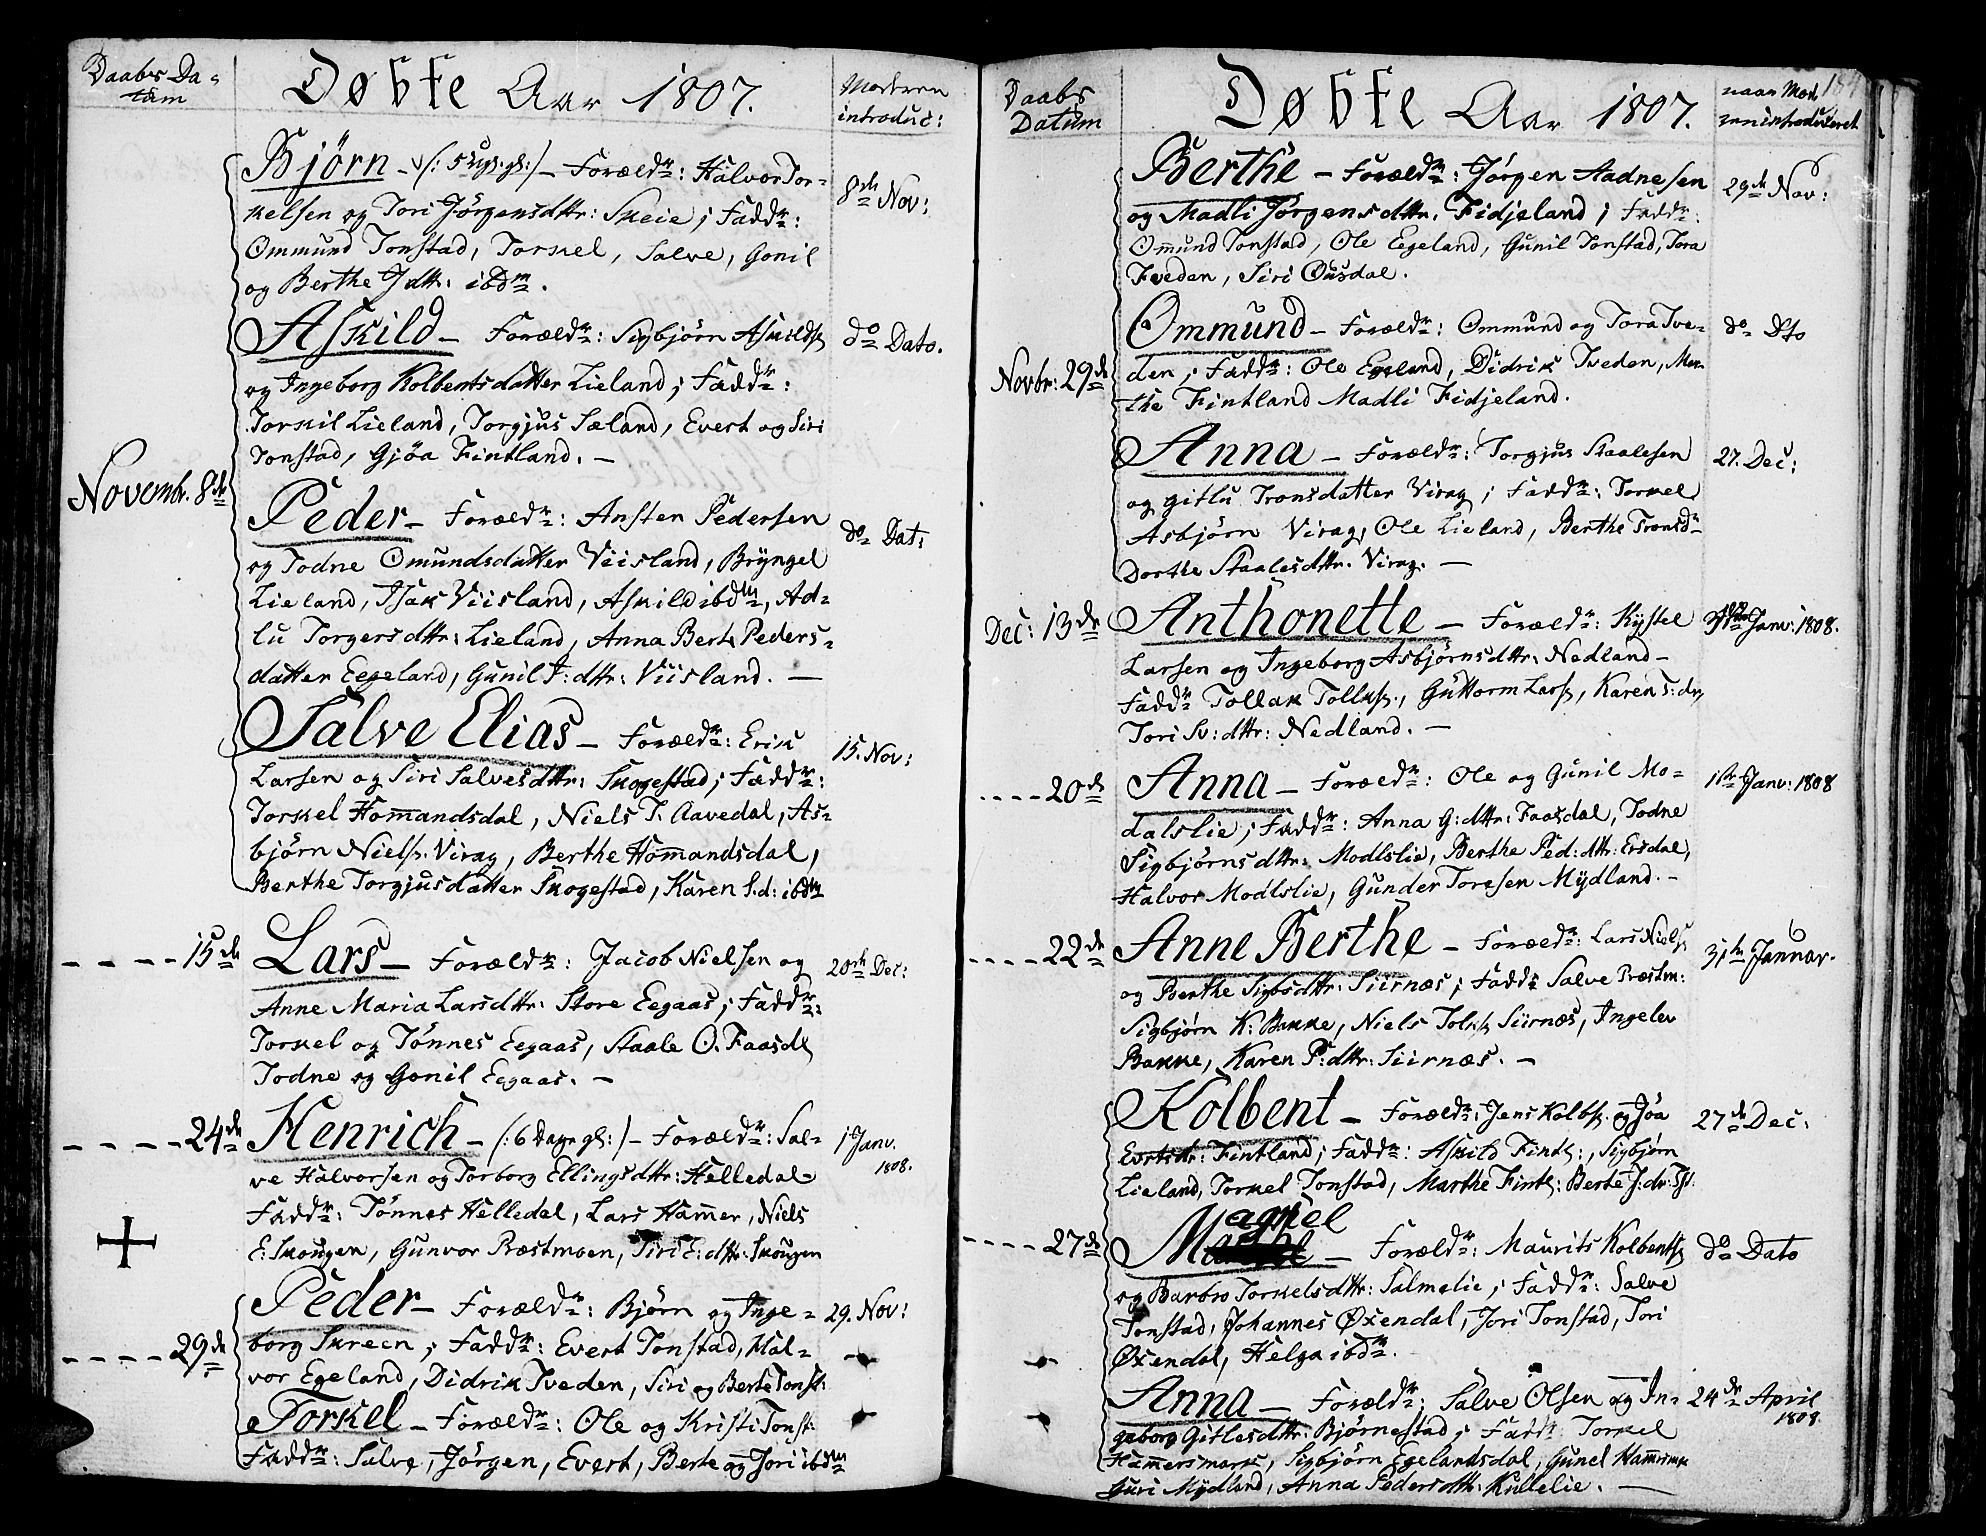 Daabs Da=
tum
Døbte Aar 1807.
Moderen
introduc:
Novembr. 8de
Bjørn - (: 5 Ugr: gl: ) - Foræld: Halvor Tor=
kelsen og Tori Jörgensdttr: Skeie; Fadd:
Ommund Tonstad, Torkel, Salve, Gonil
og Berthe Jdttr: ibdm.
8de Nov:
Askild - Foræld: Sigbjörn Askilds
og Ingeborg Kolbentsdatter Lieland; Fadd:
Torkil Lieland, Torgjus Sæland, Evert og Siri
Tonstad, Gjöa Fintland. -
do Dato.
Peder - Foræld: Ansten Pedersen
og Todne Omundsdatter Viisland, Bryngel
Lieland, Isak Viisland, Askild ibdm, Ad=
lu Torgersdttr: Lieland, Anna Berte Peders=
datter Eegeland, Gunil T: dttr: Viisland. -
do Dat:
Salve Elias - Foræld: Erik
Larsen og Siri Salvesdttr: Skogestad; Fadd:
Torkel Hommandsdal, Niels T. Aavedal, As=
björn Niels. Virag, Berthe Hommandsdal,
Berthe Torgjusdatter Skogestad, Karen S:d: ibdm
15. Nov:
---- 15de Lars - Foræld: Jacob Nielsen og
Anne Maria Larsdttr: Store Eegaas; Fadd:
Torkel og Tönnes Eegaas, Staale O. Faasdl
Todne og Gonil Eegaas. -
20de Dec:
---- 24de Henrich - (: 6 Dage gl: ) - Foræld: Sal=
ve Halvorsen og Torborg Ellingsdttr: Helledal=
Fadd: Tönnes Helledal, Lars Hammer, Niels
E: Skougen, Gunvor Præstmoen, Siri E: dttr: Skougen
1 Janv.
1808.
---- 29de
Peder - Foræld: Björn og Inge=
borg Skreen; Fadd: Evert Tonstad, Hal=
vor Egeland, Didrik Tveden, Siri og Berte Tonst:
29. Nov:
Torkel - Foræld: Ole og Kristi Tonst:
Fadd: Salve, Jörgen, Evert, Berte og Jori ibdm
Daabs
Datum
Døbte Aar 1807.
naar Mod
ren introduceret
Novbr: 29de
Berthe - Foræld: Jörgen Aadnesen
og Madli Jörgensdttr. Fidjeland; Fadd:
Omund Tonstad, Ole Egeland, Gunil Tonstad, Tora
Tveden, Siri Ousdal.
29de Nov:
Ommund - Foræld: Ommund og Tora Tve=
den; Fadd: Ole Egeland, Didrik Tveden, Mar
the Fintland Madli Fidjeland.
do Dto
Anna - Foræld: Torgjus Staalesen
og Gitlu Tronsdatter Virag; Fadd: Torkel
Asbjörn Virag, Ole Lieland, Berthe Tronsd
Dorthe Staalesdttr. Virag. -
27. Dec:
Dec: 13de Anthonette - Foræld: Kystel
Larsen og Ingeborg Asbjörnsdttr: Nedland -
Fadd Tollak Tollks., Guttorm Lars, Karen T: dr,
Tori Sv: dttr: Nedland. -
Janv: 1808.
---- 20de Anna - Foræld: Ole og Gunil Mo=
dalslie; Fadd: Anna G: dttr: Faasdal, Todne
Sigbjörnsdttr: Modlslie, Berthe Ped: dttr: Ersdal,
Halvor Modlslie, Gunder Toresen Mydland. -
1ste Janv: 1808
---- 22de Anne Berthe - Foræld: Lars Niels
og Berthe Sigbsdttr: Siirnæs; Fadd Salve Præstm:
Sigbjörn K: Bakke, Niels Tolk Siirnæs, Ingelev
Bakke, Karen P: dttr: Siirnæs. -
31te Januar.
Kolbent - Foræld: Jens Kolbs. og Jöa
Evrtsdr: Fintland; Fadd: Askild Fintl:, Sigbjörn
Lieland, Torkel Tonstad, Marthe Fintl: Berte J: dr: Tst.
27de Dec:
---- 27de Magnel - Foræld: Maurits Kolbents
og Barbro Torkelsdttr: Salmelie; Fadd: Salve
Tonstad, Johannes Øxendal, Jori Tonstad, Tori
Øxendal, Helga ibdm.
do Dato
Anna - Foræld: Salve Olsen og In=
geborg Gitlesdttr: Björnestad; Fadd: Torkel
Hammersmark, Sigbjörn Egelandsdal, Gunel Hammrmk
Guri Mydland, Anna Pedersdttr: Kvllelie. -
24de April
1808.